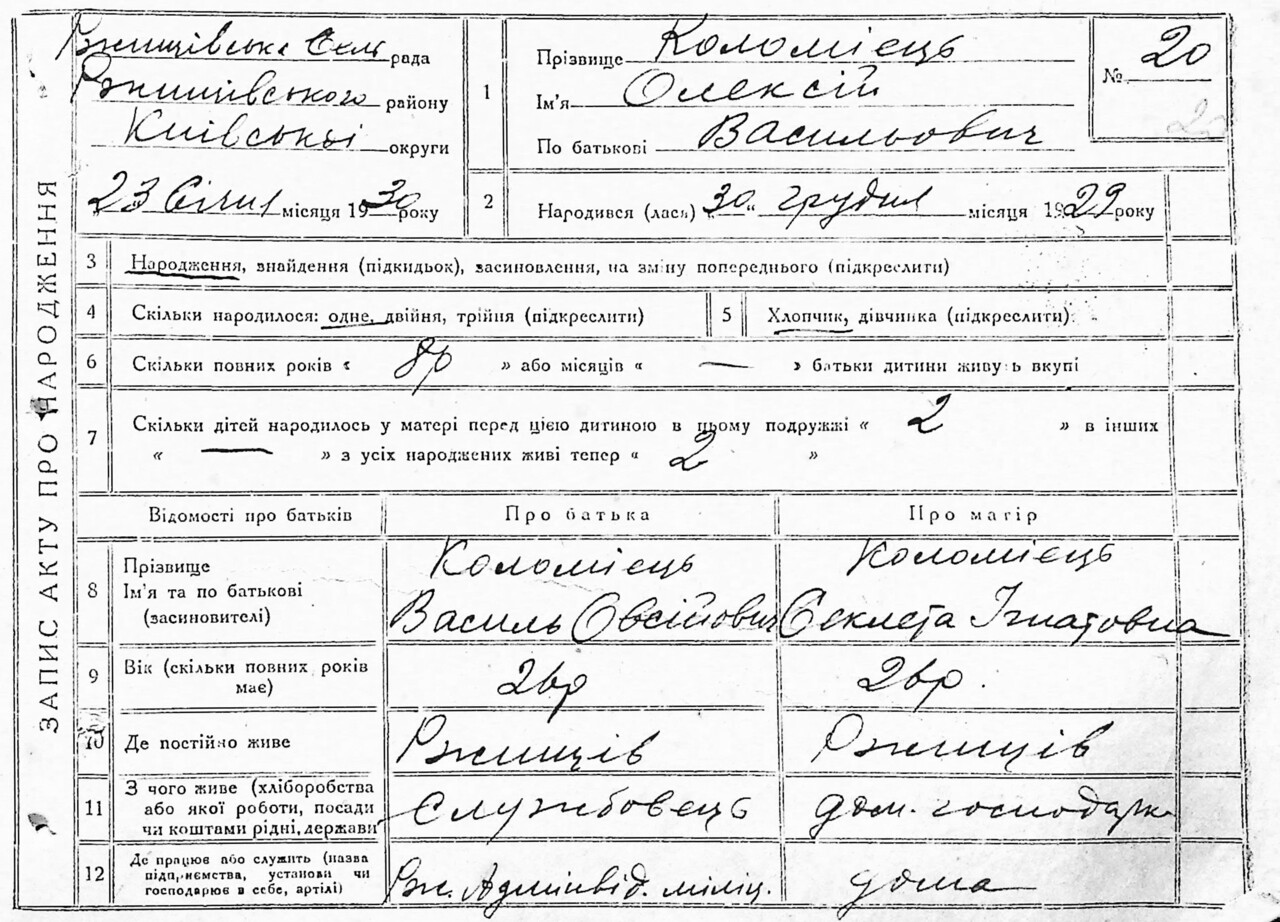 ЗАПИС АКТУ ПРО НАРОДЖЕННЯ
Ржищівська Сель рада
Ржищівського району
Київської округи
23 Січня місяця 1930 року
1
Прізвище Коломієць
Ім'я Олексій
По батькові Васильович
№ 20
2
Народився (лася) „30“ грудня місяця 1929 року
3 Народження, знайдення (підкидьок), засиновлення, на зміну попереднього (підкреслити)
4 Скільки народилося: одне, двійня, трійня (підкреслити) 5 Хлопчик, дівчинка (підкреслити).
6 Скільки повних років « 8р » або місяців « — » батьки дитини живуть вкупі
7 Скільки дітей народилось у матері перед цією дитиною в цьому подружжі « 2 » в інших
« — » з усіх народжених живі тепер « 2 »
Відомості про батьків Про батька Про матір
8 Прізвище
Ім'я та по батькові
(засиновителі)
Коломієць
Василь Овсійович
Коломієць
Секлета Ігнатовна
9 Вік (скільки повних років
має)
10 Де постійно живе Ржищів Ржищів
11 З чого живе (хліборобства
або якої роботи, посади
чи коштами рідні, держави
Службовець
дом. господарка
12 Де працює або служить (назва
підприємства, установи чи
господарює в себе, артілі)
Рж. Адмінвід. міліц.
дома